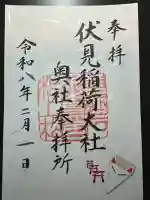 奉拝
伏見稲荷大社
奥社奉拝所
令和八年二月一日